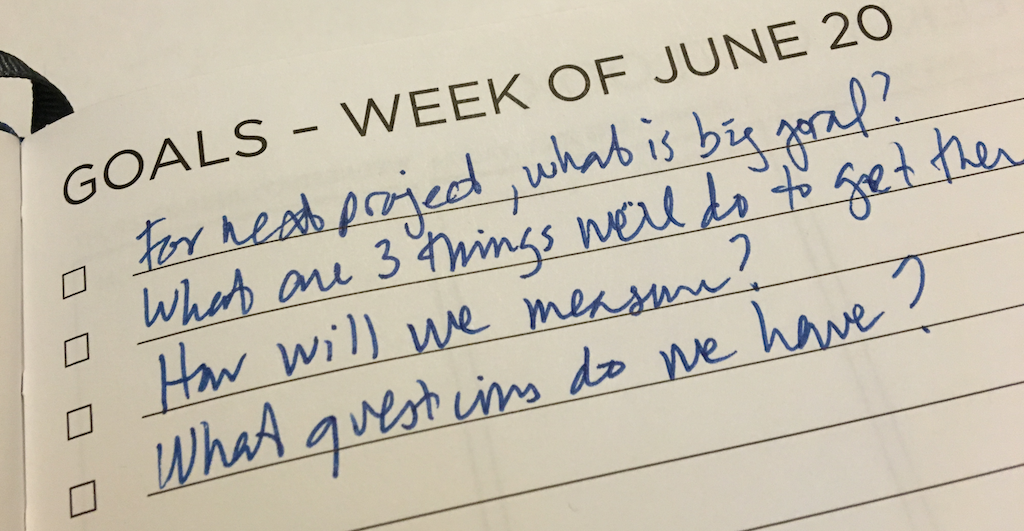 GOALS – WEEK OF JUNE 20
For next project, what is big goal?
What are 3 things we'll do to get ther
How will we measure?
What questions do we have?